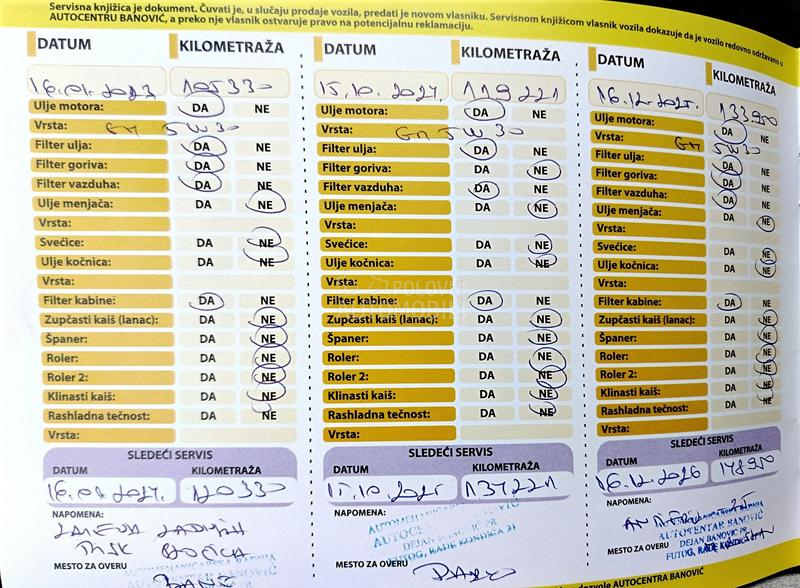 Servisna knjižica je dokument. Čuvati je, u slučaju prodaje vozila, predati je novom vlasniku. Servisnom knjižicom vlasnik vozila dokazuje da je vozilo redovno održavano u
AUTOCENTRU BANOVIĆ, a preko nje vlasnik ostvaruje pravo na potencijalnu reklamaciju.
DATUM KILOMETRAŽA
16.01.2023 105330
Ulje motora: DA NE
Vrsta: GM 5W30
Filter ulja: DA NE
Filter goriva: DA NE
Filter vazduha: DA NE
Ulje menjača: DA NE
Vrsta:
Svećice: DA NE
Ulje kočnica: DA NE
Vrsta:
Filter kabine: DA NE
Zupčasti kaiš (lanac): DA NE
Španer: DA NE
Roler: DA NE
Roler 2: DA NE
Klinasti kaiš: DA NE
Rashladna tečnost: DA NE
Vrsta:
SLEDEĆI SERVIS
DATUM KILOMETRAŽA
16.01.2024. 120330
NAPOMENA:
ZAMENA ZADNJIH
MESTO ZA OVERU
DATUM KILOMETRAŽA
15.10.2024. 119221
Ulje motora: DA NE
Vrsta: GM 5W30
Filter ulja: DA NE
Filter goriva: DA NE
Filter vazduha: DA NE
Ulje menjača: DA NE
Vrsta:
Svećice: DA NE
Ulje kočnica: DA NE
Vrsta:
Filter kabine: DA NE
Zupčasti kaiš (lanac): DA NE
Španer: DA NE
Roler: DA NE
Roler 2: DA NE
Klinasti kaiš: DA NE
Rashladna tečnost: DA NE
Vrsta:
SLEDEĆI SERVIS
DATUM KILOMETRAŽA
15.10.2025 134221
NAPOMENA:
DEJAN BANOVIĆ PR
FUTOG, RADE KONDIĆA 21
MESTO ZA OVERU
DATUM KILOMETRAŽA
16.12.2025. 133950
Ulje motora: DA NE
Vrsta: GM 5W30
Filter ulja: DA NE
Filter goriva: DA NE
Filter vazduha: DA NE
Ulje menjača: DA NE
Vrsta:
Svećice: DA NE
Ulje kočnica: DA NE
Vrsta:
Filter kabine: DA NE
Zupčasti kaiš (lanac): DA NE
Španer: DA NE
Roler: DA NE
Roler 2: DA NE
Klinasti kaiš: DA NE
Rashladna tečnost: DA NE
Vrsta:
SLEDEĆI SERVIS
DATUM KILOMETRAŽA
16.12.2026 148950
NAPOMENA:
AUTOCENTAR BANOVIĆ
DEJAN BANOVIĆ PR
FUTOG, RADE KONDIĆA
MESTO ZA OVERU
AUTOCENTRA BANOVIĆ